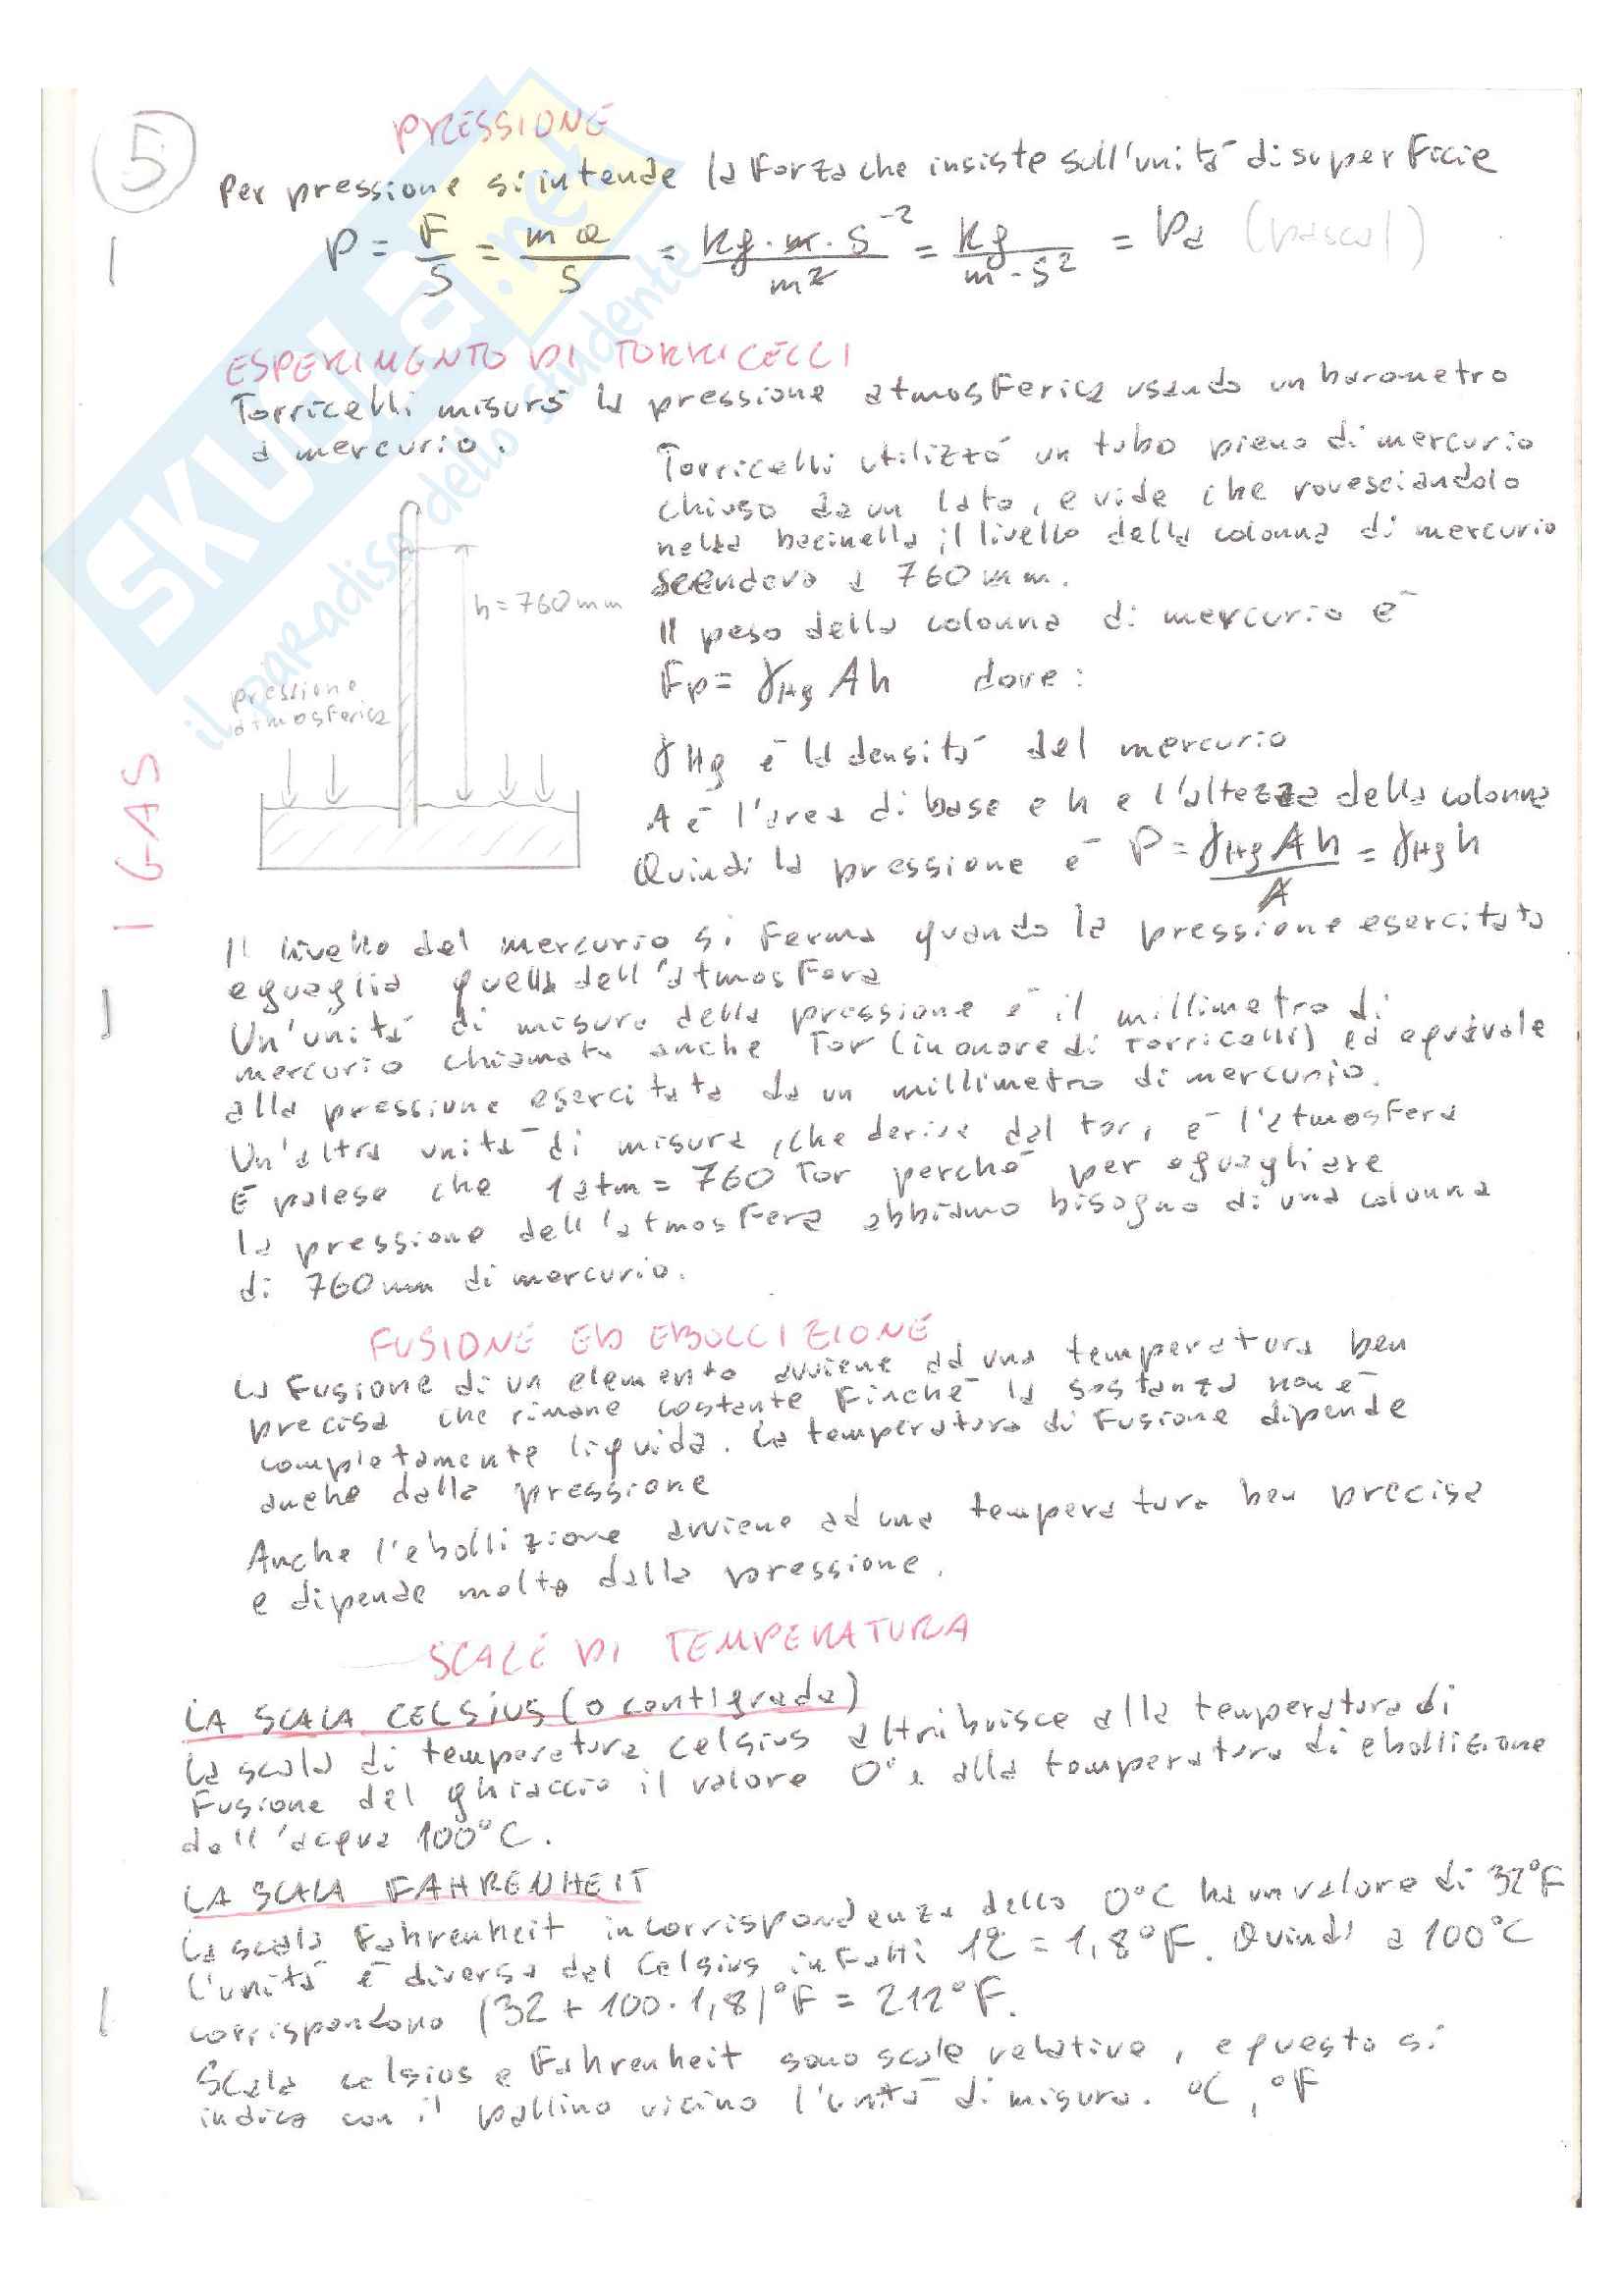 5
PRESSIONE
Per pressione si intende la forza che insiste sull'unità di superficie
P = F/S = m a/S = kg · m · s⁻²/m² = kg/m · s² = Pa (pascal)
ESPERIMENTO DI TORRICELLI
Torricelli misurò la pressione atmosferica usando un barometro
a mercurio.
Torricelli utilizzó un tubo pieno di mercurio
chiuso da un lato, e vide che rovesciandolo
nella bacinella il livello della colonna di mercurio
scendeva a 760 mm.
h = 760 mm
Il peso della colonna di mercurio è
Fp = γHg A h dove:
pressione
atmosferica
γHg è la densità del mercurio
A è l'area di base e h e l'altezza della colonna
Quindi la pressione è P = γHg A h/A = γHg h
I GAS
Il livello del mercurio si ferma quando la pressione esercitata
eguaglia quella dell'atmosfera
Un'unità di misura della pressione è il millimetro di
mercurio chiamato anche Tor (in onore di Torricelli) ed equivale
alla pressione esercitata da un millimetro di mercurio.
Un'altra unità di misura, che deriva dal tor, è l'atmosfera
E palese che 1 atm = 760 Tor perché per eguagliare
la pressione dell'atmosfera abbiamo bisogno di una colonna
di 760 mm di mercurio.
FUSIONE ED EBOLLIZIONE
La fusione di un elemento avviene ad una temperatura ben
precisa che rimane costante finché la sostanza non è
completamente liquida. La temperatura di fusione dipende
anche dalla pressione
Anche l'ebollizione avviene ad una temperatura ben precisa
e dipende molto dalla pressione.
SCALE DI TEMPERATURA
LA SCALA CELSIUS (o centigrada)
La scala di temperatura celsius attribuisce alla temperatura di
fusione del ghiaccio il valore 0° e alla temperatura di ebollizione
dell'acqua 100°C.
LA SCALA FAHRENHEIT
La scala Fahrenheit in corrispondenza dello 0°C ha un valore di 32°F
L'unità è diversa dal Celsius infatti 1°C = 1,8°F. Quindi a 100°C
corrispondono (32 + 100 · 1,8)°F = 212°F.
Scala celsius e Fahrenheit sono scale relative, e questo si
indica con il pallino vicino l'unità di misura. °C, °F
SKUOLA.net
il paradiso dello studente